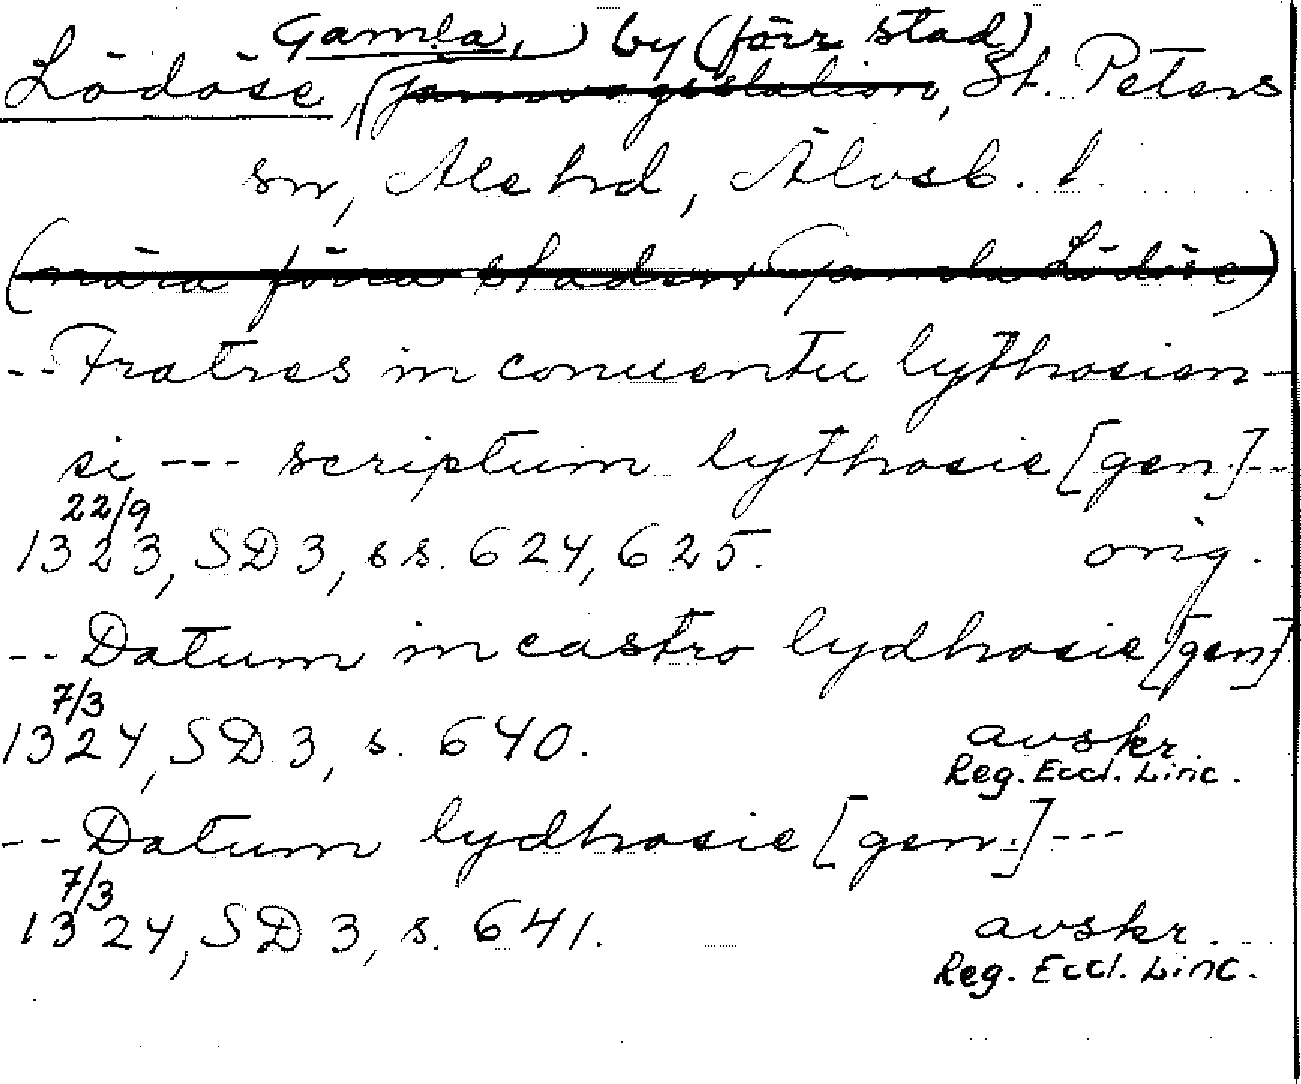 Gamla, by (förr stad)
Lödöse, järnvägsstation, St. Peters
sn, Ale hd, Älvsb. l.
(nära förra staden Gamla Lödöse)
-- Fratres in conuentu lythosien-
si --- scriptum lythosie [gen.] --
22/9
1323, SD 3, ss. 624, 625. orig.
-- Datum in castro lydhosie [gen]
7/3
1324, SD 3, s. 640. avskr.
Reg. Eccl. Linc.
-- Datum lydhosie [gen.] ---
7/3
1324, SD 3, s. 641. avskr.
Reg. Eccl. Linc.